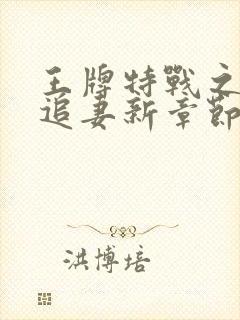 王牌特戰之
追妻新章節
洪博培